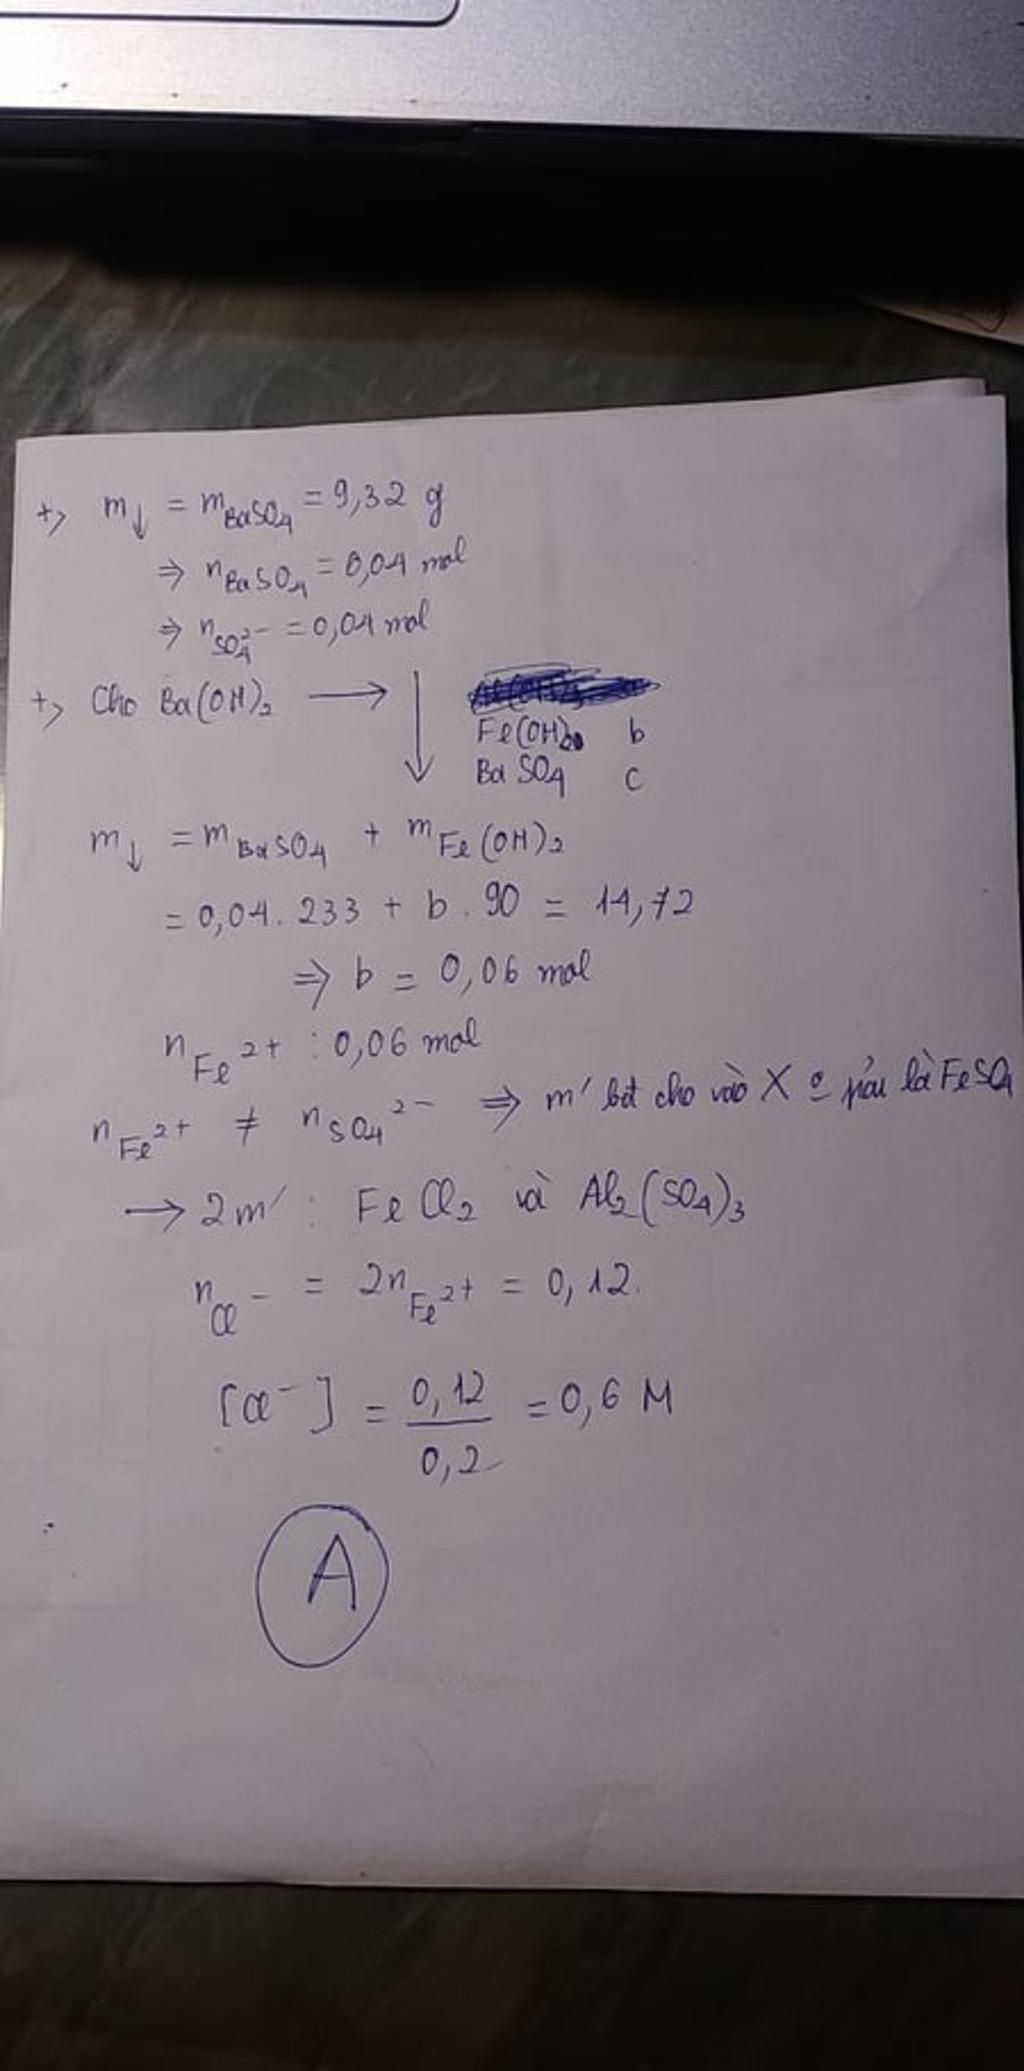 +> m↓ = m BaSO4 = 9,32 g
⇒ n BaSO4 = 0,04 mol
⇒ n SO4 2- = 0,04 mol
+> Cho Ba(OH)2 → ↓
Fe(OH)2 b
BaSO4 c
m↓ = m BaSO4 + m Fe(OH)2
= 0,04. 233 + b . 90 = 14,72
⇒ b = 0,06 mol
n Fe 2+ : 0,06 mol
n Fe 2+ ≠ n SO4 2- ⇒ m' bột cho vào X o phải là FeSO4
→ 2 m' : FeCl2 và Al2(SO4)3
n Cl - = 2n Fe 2+ = 0,12.
[Cl-] = 0,12 / 0,2 = 0,6 M
A